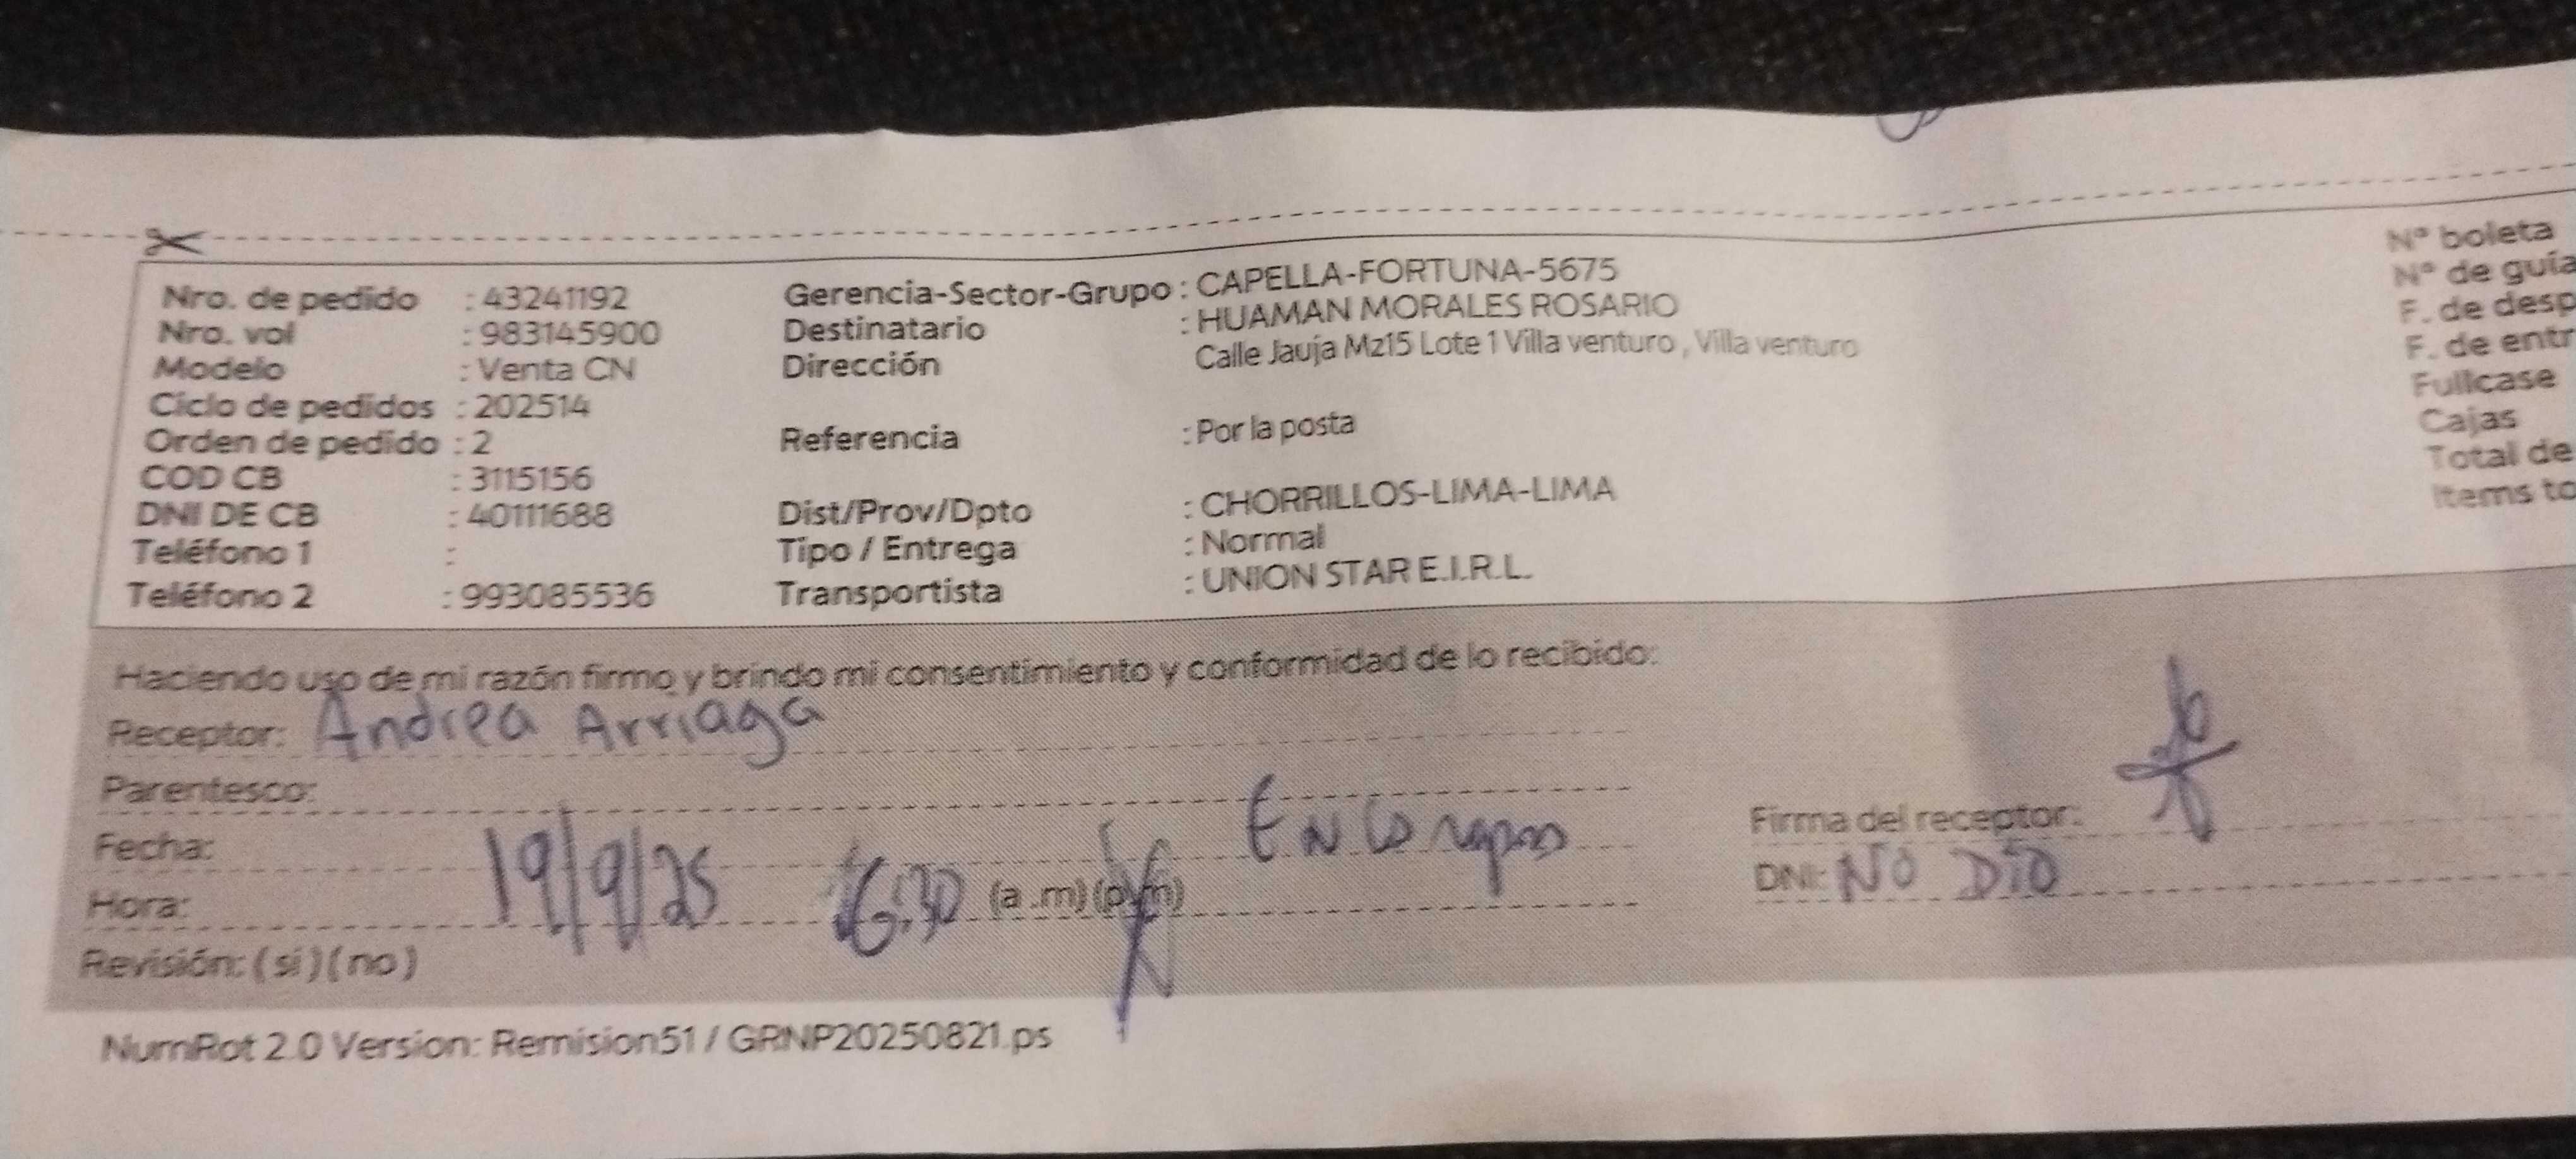 Nro. de pedido : 43241192
Nro. vol : 983145900
Modelo : Venta CN
Ciclo de pedidos : 202514
Orden de pedido : 2
COD CB : 3115156
DNI DE CB : 40111688
Teléfono 1 :
Teléfono 2 : 993085536
Gerencia-Sector-Grupo : CAPELLA-FORTUNA-5675
Destinatario : HUAMAN MORALES ROSARIO
Dirección Calle Jauja Mz15 Lote 1 Villa venturo , Villa venturo
Referencia : Por la posta
Dist/Prov/Dpto : CHORRILLOS-LIMA-LIMA
Tipo / Entrega : Normal
Transportista : UNION STAR E.I.R.L.
N° boleta
N° de guía
F. de desp
F. de entr
Fullcase
Cajas
Total de
Items to
Haciendo uso de mi razón firmo y brindo mi consentimiento y conformidad de lo recibido:
Receptor: Andrea Arriaga
Parentesco:
Fecha: 19/9/25
Hora: 6:30 (a .m) (p.m)
Revisión: ( si ) ( no )
Firma del receptor:
DNI: NO DIO
NumRot 2.0 Version: Remision51 / GRNP20250821.ps